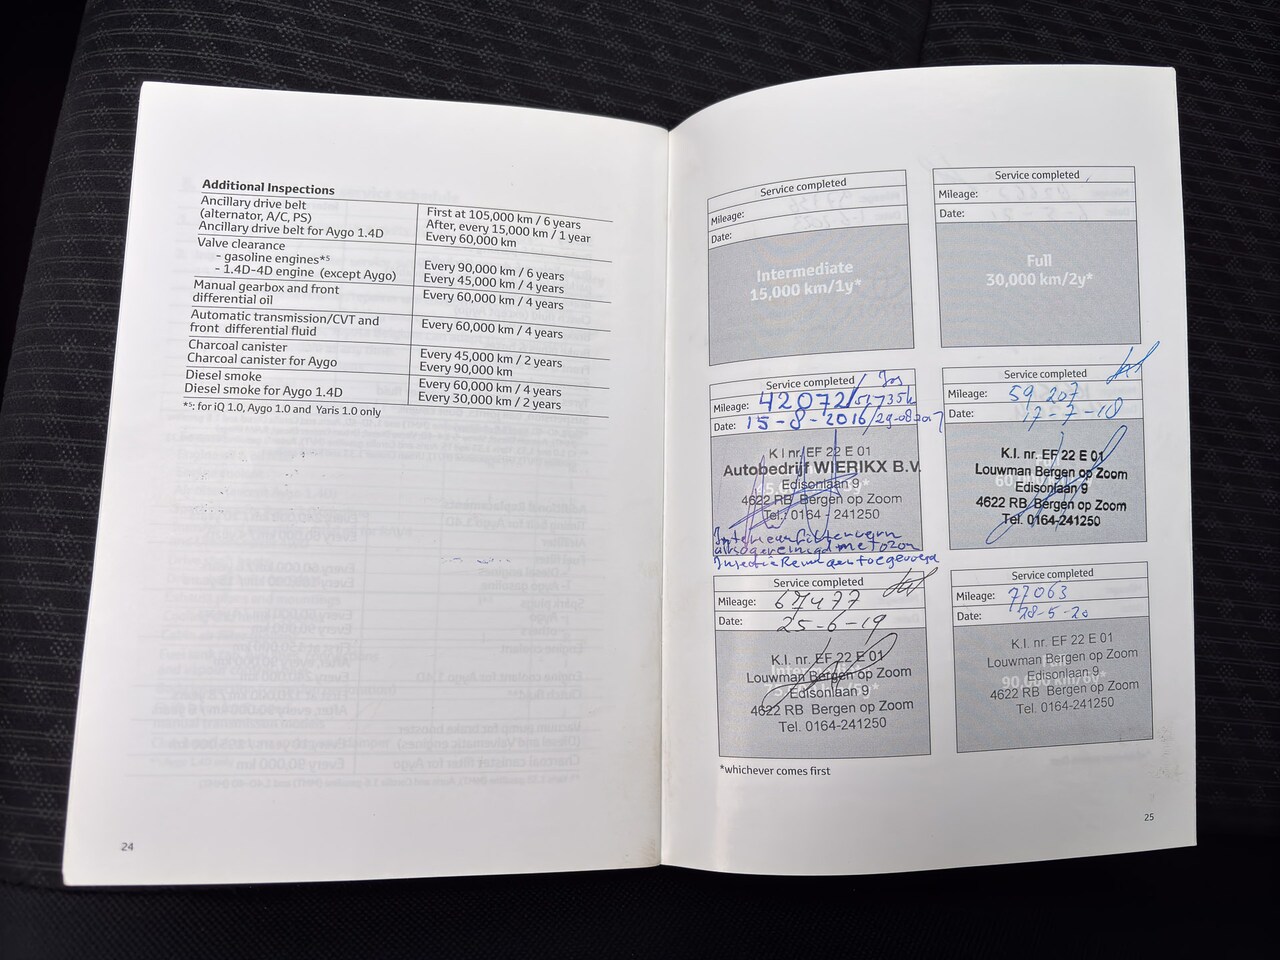 Additional Inspections
Ancillary drive belt
(alternator, A/C, PS) First at 105,000 km / 6 years
After, every 15,000 km / 1 year
Ancillary drive belt for Aygo 1.4D Every 60,000 km
Valve clearance
- gasoline engines*5 Every 90,000 km / 6 years
- 1.4D-4D engine (except Aygo) Every 45,000 km / 4 years
Manual gearbox and front Every 60,000 km / 4 years
differential oil
Automatic transmission/CVT and Every 60,000 km / 4 years
front differential fluid
Charcoal canister Every 45,000 km / 2 years
Charcoal canister for Aygo Every 90,000 km
Diesel smoke Every 60,000 km / 4 years
Diesel smoke for Aygo 1.4D Every 30,000 km / 2 years
*5: for iQ 1.0, Aygo 1.0 and Yaris 1.0 only
24
Service completed
Mileage:
Date:
Intermediate
15,000 km/1y*
Service completed
Mileage:
Date:
Full
30,000 km/2y*
Service completed
Mileage: 42072/51735k
Date: 15-8-2016/29-08-2017
K I nr. EF 22 E 01
Autobedrijf WIERIKX B.V.
Edisonlaan 9
4622 RB Bergen op Zoom
Tel.: 0164 - 241250
Service completed
Mileage: 59 207
Date: 17-7-18
K.I. nr. EF 22 E 01
Louwman Bergen op Zoom
Edisonlaan 9
4622 RB Bergen op Zoom
Tel. 0164-241250
Service completed
Mileage: 67477
Date: 25-6-19
K.I. nr. EF 22 E 01
Louwman Bergen op Zoom
Edisonlaan 9
4622 RB Bergen op Zoom
Tel. 0164-241250
Service completed
Mileage: 77063
Date: 28-5-20
K.I. nr. EF 22 E 01
Louwman Bergen op Zoom
Edisonlaan 9
90,000 km/6y*
4622 RB Bergen op Zoom
Tel. 0164-241250
*whichever comes first
25